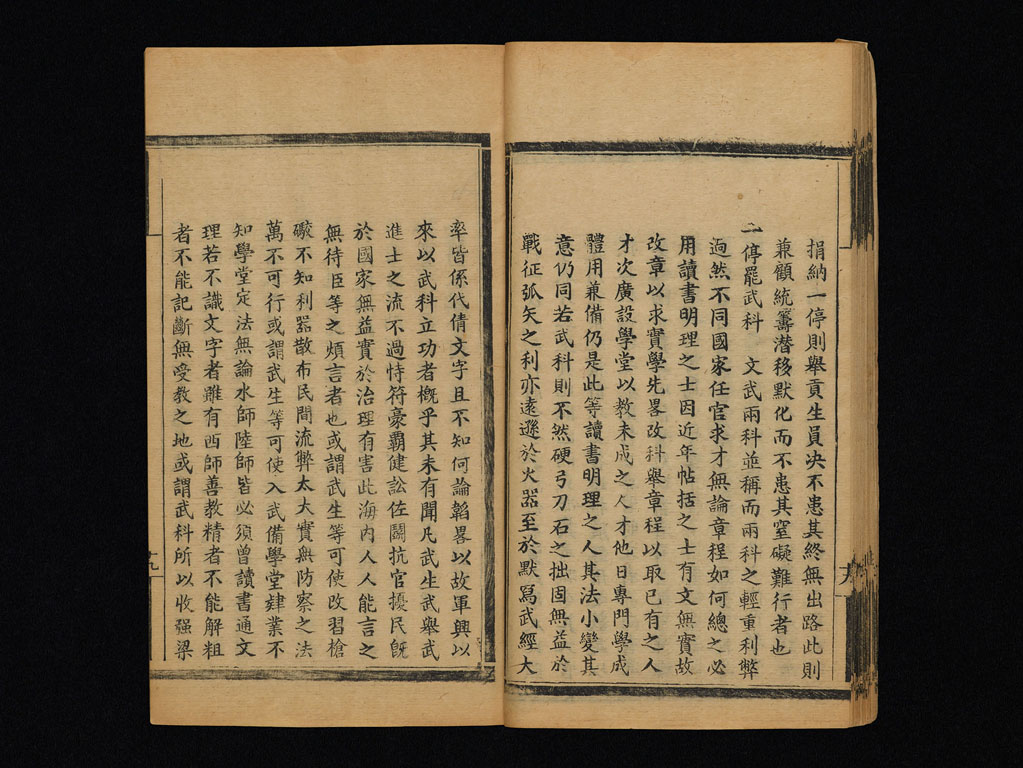 捐納一停則舉貢生員决不患其終無出路此則
兼顧統籌潜移默化而不患其窒礙難行者也
一停罷武科　文武兩科並稱而兩科之輕重利弊
逈然不同國家任官求才無論章程如何總之必
用讀書明理之士因近年帖括之士有文無實故
改章以求實學先畧改科舉章程以取已有之人
才次廣設學堂以教未成之人才他日專門學成
體用兼備仍是此等讀書明理之人其法小變其
意仍同若武科則不然硬弓刀石之拙固無益於
戰征弧矢之利亦遠遜於火器至於默寫武經大
率皆係代倩文字且不知何論韜畧以故軍興以
來以武科立功者概乎其未有聞凡武生武舉武
進士之流不過恃符豪霸健訟佐鬭抗官擾民旣
於國家無益實於治理有害此海内人人能言之
無待臣等之煩言者也或謂武生等可使改習槍
礮不知利器散布民間流弊太大實無防察之法
萬不可行或謂武生等可使入武備學堂肄業不
知學堂定法無論水師陸師皆必須曾讀書通文
理若不識文字者雖有西師善教精者不能解粗
者不能記斷無受教之地或謂武科所以收强梁
十九